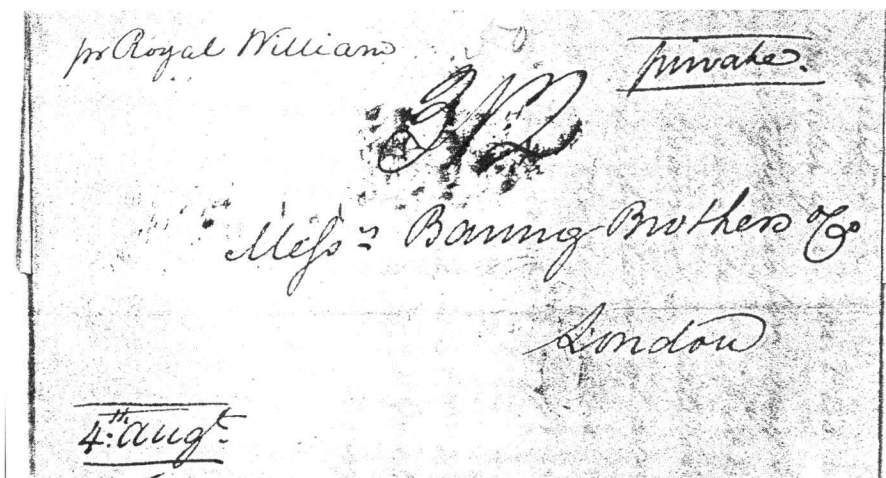 pr Royal William
private.
Messrs Baring Brothers & Co
London
4:th augt